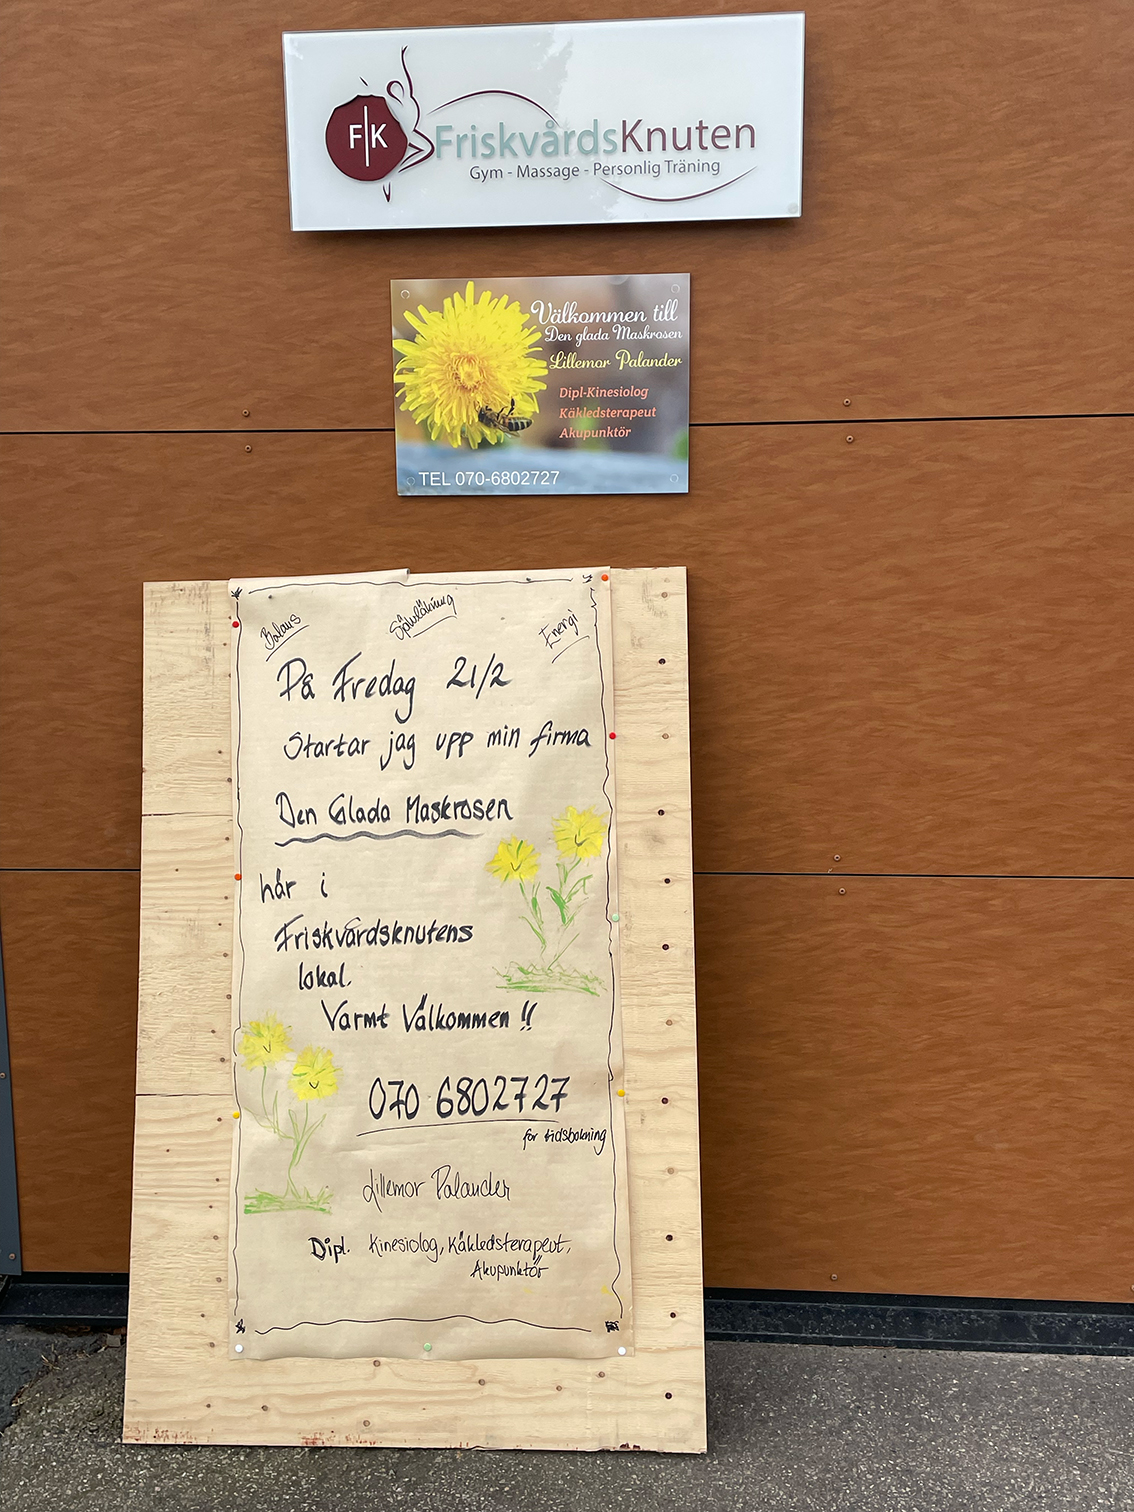 F|K
FriskvårdsKnuten
Gym - Massage - Personlig Träning
Välkommen till
Den glada Maskrosen
Lillemor Palander
Dipl-Kinesiolog
Käkledsterapeut
Akupunktör
TEL 070-6802727
Balans
Självläkning
Energi
På Fredag 21/2
Startar jag upp min firma
Den Glada Maskrosen
här i
Friskvårdsknutens
lokal.
Varmt Välkommen !!
070 6802727
för tidsbokning
Lillemor Palander
Dipl. Kinesiolog, Käkledsterapeut,
Akupunktör